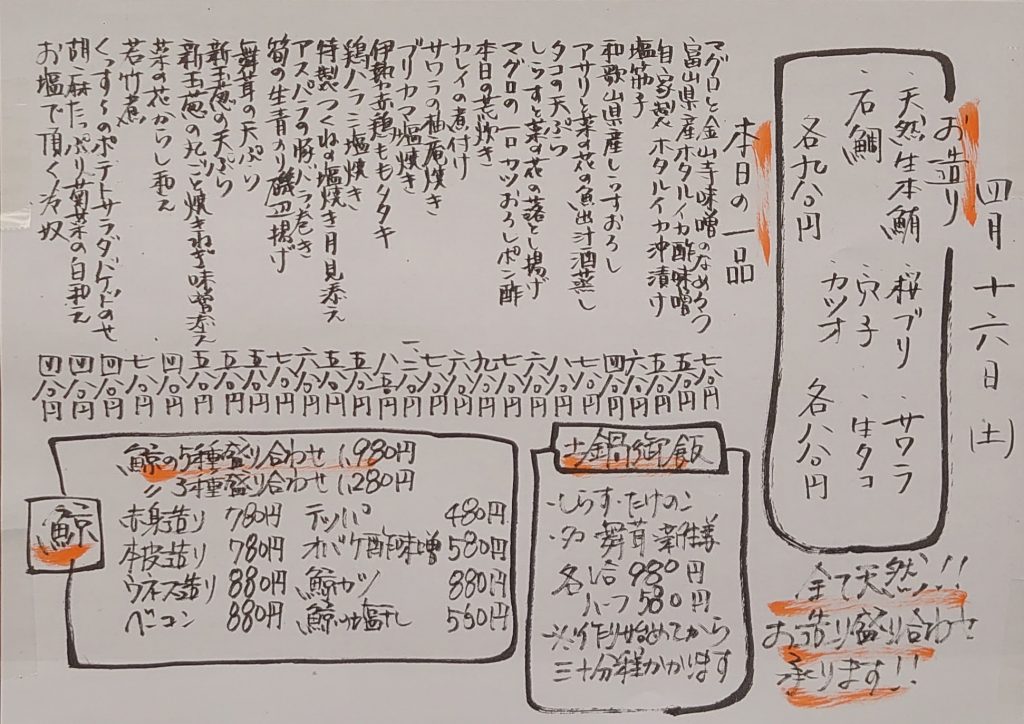 四月十六日(土)
お造り
・天然生本鮪 ・桜ブリ ・サワラ
・石鯛 ・穴子 ・生タコ
・カツオ
各九八〇円 各八八〇円
全て天然!!
お造り盛り合わせ
承ります!!
本日の一品
マグロと金山寺味噌のなめろう 七八〇円
富山県産ホタルイカ酢味噌 五八〇円
自家製ホタルイカ沖漬け 五八〇円
塩筋子 六八〇円
和歌山県産しらすおろし 四八〇円
アサリと菜の花の魚出汁酒蒸し 七八〇円
タコの天ぷら 八八〇円
しらすと菜の花の落とし揚げ 六八〇円
マグロの一口カツおろしポン酢 七八〇円
本日の荒炊き 九八〇円
カレイの煮付け 六八〇円
サワラの柚庵焼き 七八〇円
ブリカマ塩焼き
伊勢赤鶏ももタタキ
鶏ハラミ塩焼き 五八〇円
特製つくねの塩焼き月見添え 五八〇円
アスパラの豚バラ巻き 六八〇円
筍の生青のり磯辺揚げ 七八〇円
舞茸の天ぷら 五八〇円
新玉葱の天ぷら 五八〇円
新玉葱の丸ごと焼きねぎ味噌添え 五八〇円
菜の花からし和え 四八〇円
若竹煮 七八〇円
くっすんのポテトサラダバゲットのせ 四八〇円
胡麻たっぷり菊菜の白和え 四八〇円
お塩で頂く冷奴 四八〇円
土鍋御飯
・しらす・たけのこ
・タコ 舞茸 新生姜
各1合 980円
ハーフ 580円
※作り始めてから
三十分程かかります
鯨
鯨の5種盛り合わせ 1,980円
〃 3種盛り合わせ 1,280円
赤身造り 780円 テッパ 480円
本皮造り 780円 オバケ酢味噌 580円
ウネス造り 880円 鯨カツ 880円
ベーコン 880円 鯨の塩干し 560円